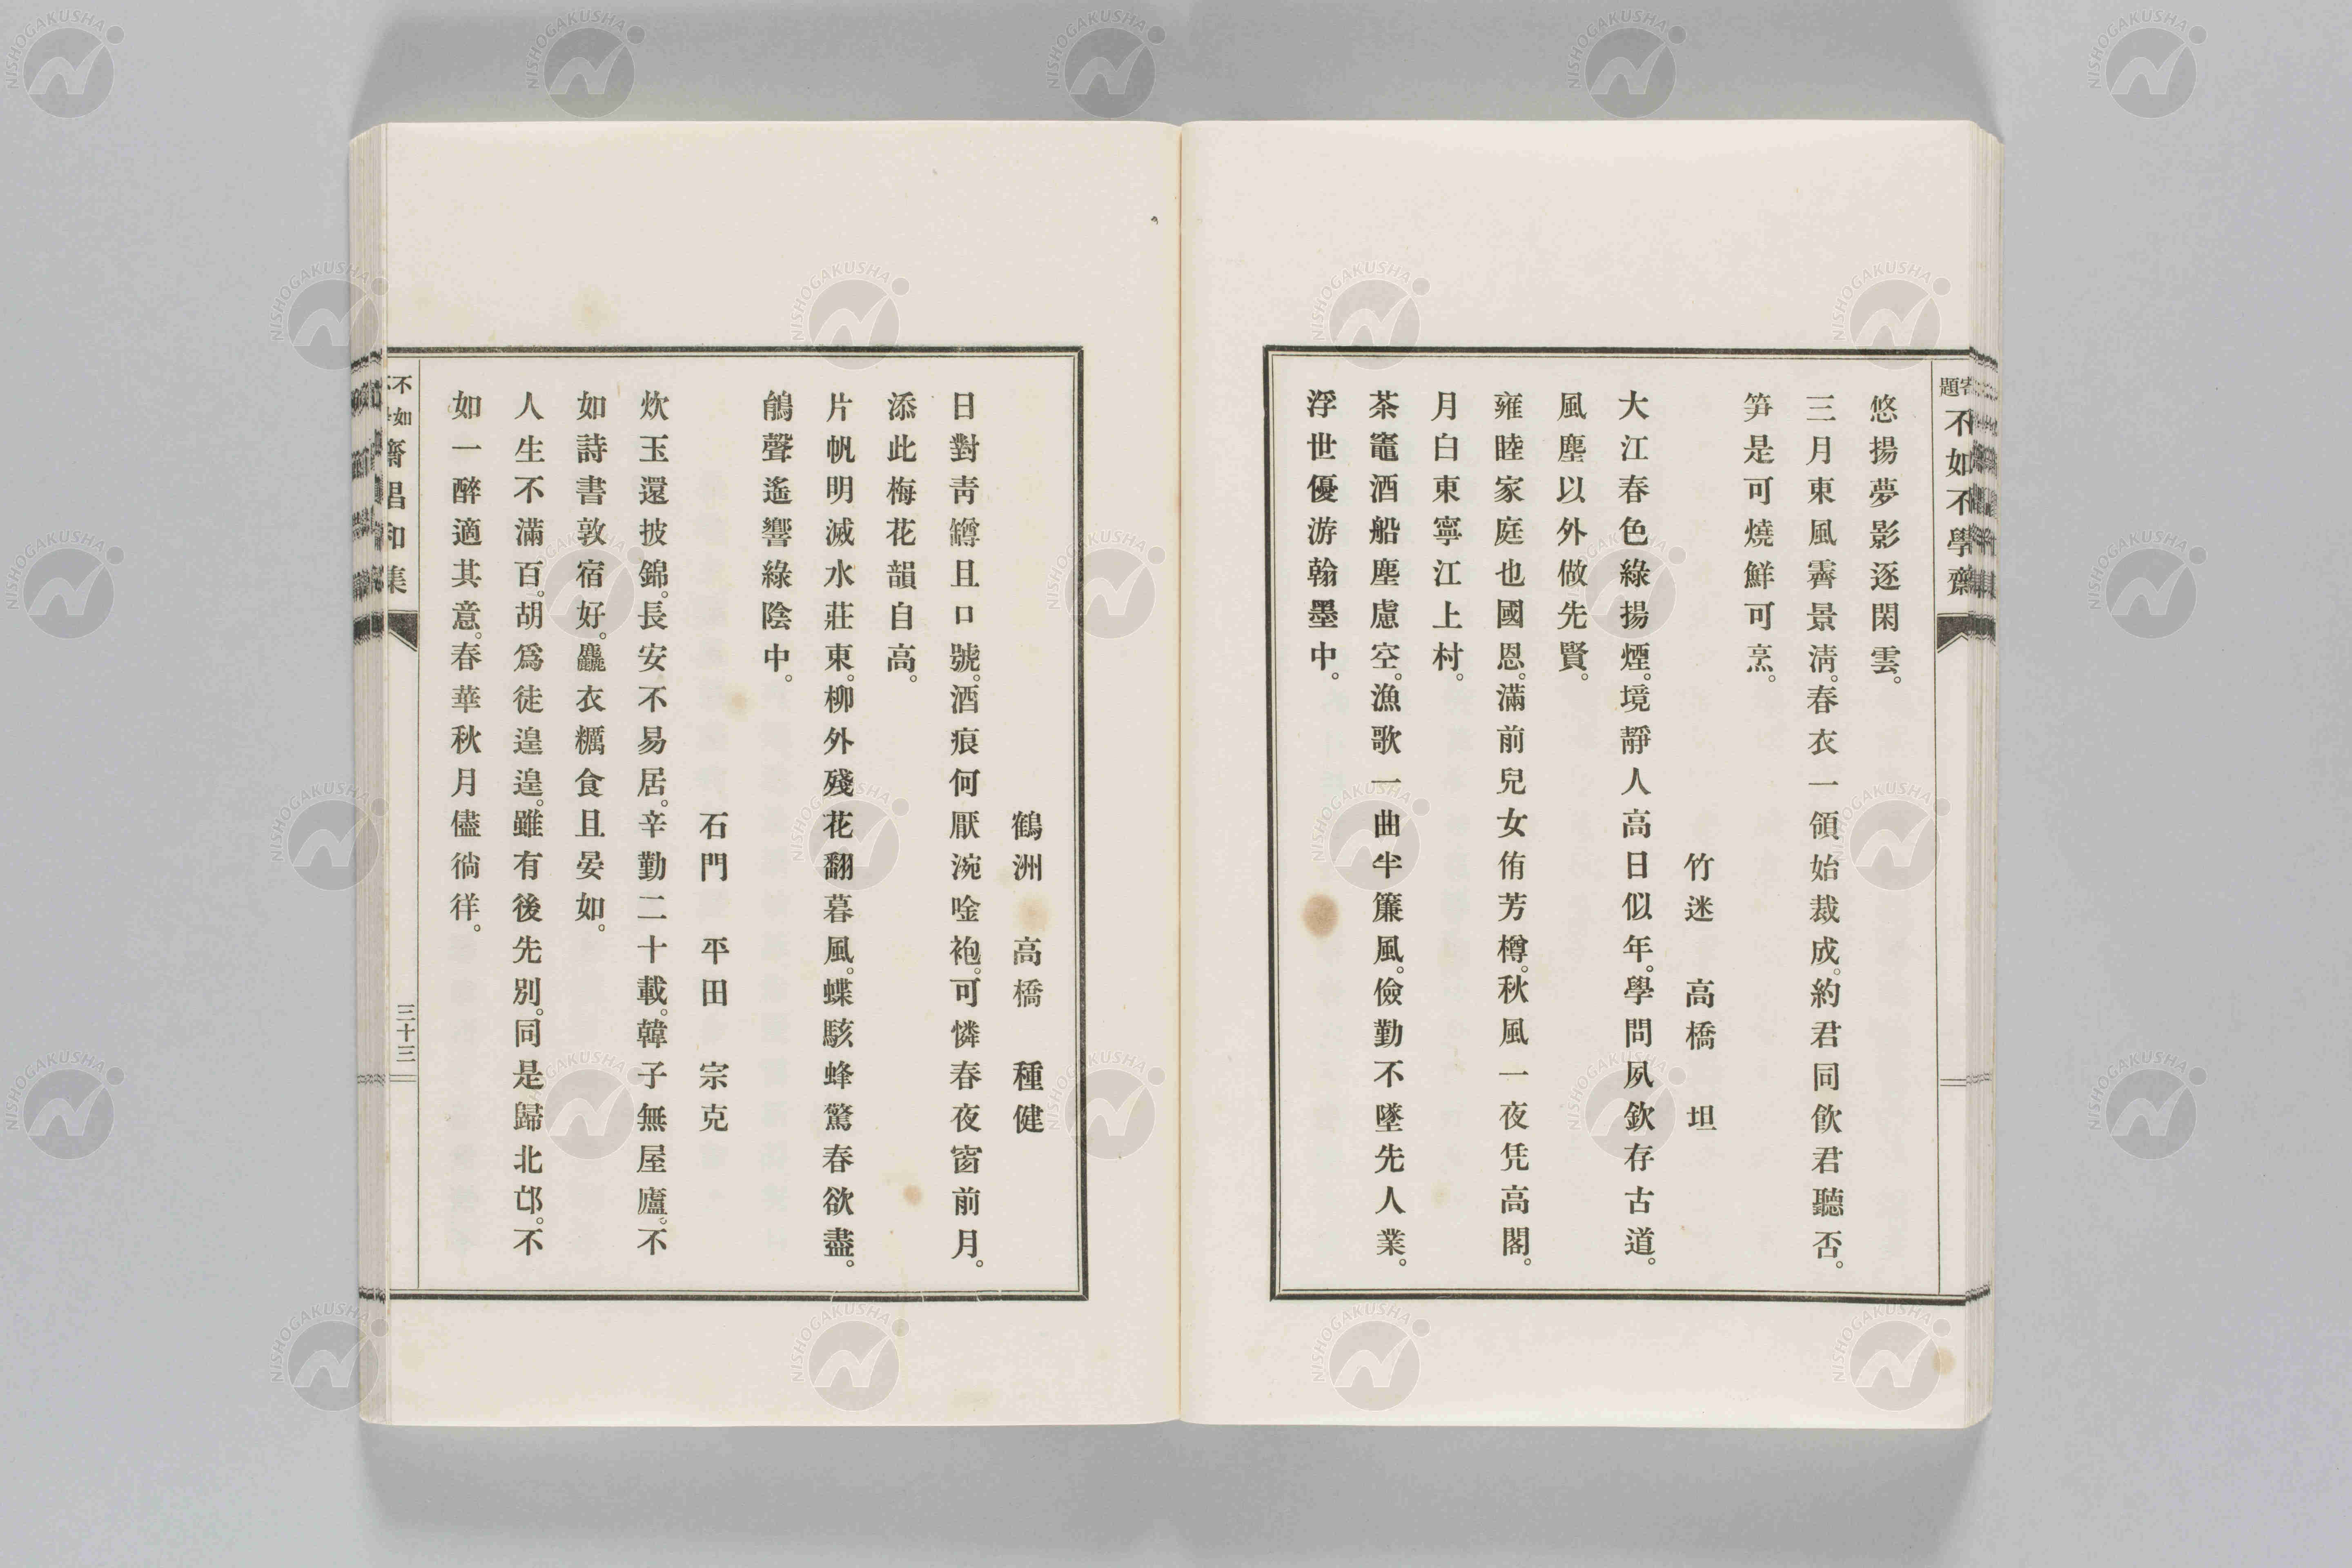 題不如不學齋
悠揚夢影逐閑雲。
三月東風霽景淸。春衣一領始裁成。約君同飮君聽否。
笋是可燒鮮可烹。
竹迷 高橋 坦
大江春色綠揚煙。境靜人高日似年。學問夙欽存古道。
風塵以外做先賢。
雍睦家庭也國恩。滿前兒女侑芳樽。秋風一夜凭高閣。
月白東寧江上村。
茶竈酒船塵慮空。漁歌一曲半簾風。儉勤不墜先人業。
浮世優游翰墨中。
鶴洲 高橋 種健
日對靑罇且口號。酒痕何厭涴唫袍。可憐春夜窗前月。
添此梅花韻自高。
片帆明滅水莊東。柳外殘花翻暮風。蝶駭蜂驚春欲盡。
鵃聲遙響綠陰中。
石門 平田 宗克
炊玉還披錦。長安不易居。辛勤二十載。韓子無屋廬。不
如詩書敦宿好。麤衣糲食且晏如。
人生不滿百。胡爲徒遑遑。雖有後先別。同是歸北邙。不
如一醉適其意。春華秋月儘徜徉。
不如
齋昌和集
三十三
NISHOGAKUSHA